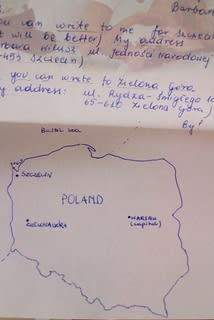 Barbara
You can write to me for Szczecin
it will be better) My address
Barbara Hilusz ul. Jedności Narodowej
-453 Szczecin)
you can write to Zielona Góra
my address: ul. Rydza-Śmigłego
65-610 Zielona Góra)
By!
Baltic sea
SZCZECIN
POLAND
ZIELONAGÓRA
WARSAW
(capital)